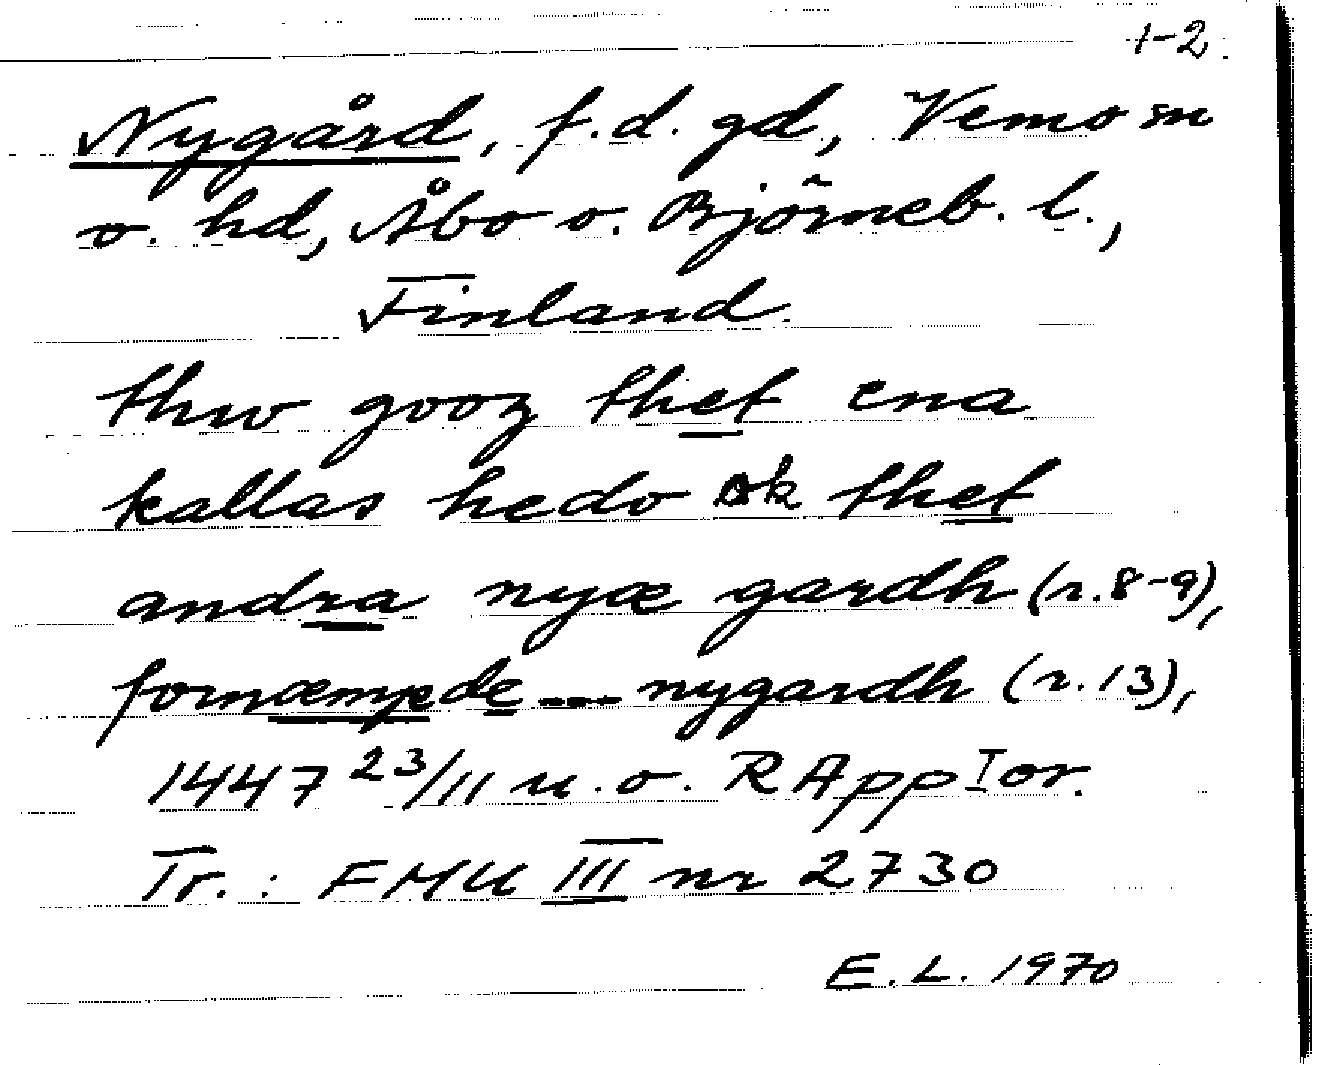 1-2.
Nygård, f.d. gd, Vemo sn
o. hd, Åbo o. Björneb. l.,
Finland.
thw gooz thet ena
kallas hedo ok thet
andra nyæ gardh (r. 8-9),
fornæmpde --- nygardh (r. 13),
1447 23/11 u.o. RApp I or.
Tr.: FMU III nr 2730
E. L. 1970